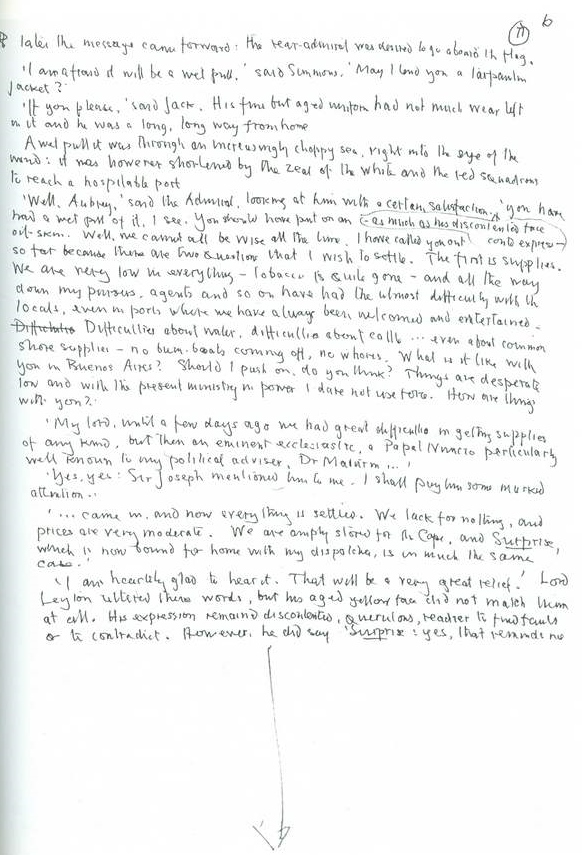 b
later the message came forward: the rear-admiral was desired to go aboard the flag.
'I am afraid it will be a wet pull,' said Simmons. 'May I lend you a tarpaulin
jacket?'
'If you please,' said Jack. His fine but aged uniform had not much wear left
in it and he was a long, long way from home
A wet pull it was through an increasingly choppy sea, right into the eye of the
wind: it was however shortened by the zeal of the white and the red squadrons
to reach a hospitable port
'Well, Aubrey,' said the Admiral, looking at him with a certain satisfaction, 'you have
had a wet pull of it, I see. You should have put on an (as much as his discontented face
oil-skin. Well, we cannot all be wise all the time. I have called you out could express)
so far because there are two questions that I wish to settle. The first is supplies.
We are very low in everything – tobacco is quite gone – and all the way
down my pursers, agents and so on have had the utmost difficulty with the
locals, even in ports where we have always been welcomed and entertained –
Difficulties about water, difficulties about cattle ... even about common
shore supplies – no bum-boats coming off, no whores. What is it like with
you in Buenos Aires? Should I push on, do you think? Things are desperate
low and with the present ministry in power I dare not use force. How are things
with you?'
'My lord, until a few days ago we had great difficulties in getting supplies
of any kind, but then an eminent ecclesiastic, a Papal Nuncio particularly
well known to my political adviser, Dr Maturin ...'
'Yes, yes: Sir Joseph mentioned him to me. I shall pay him some marked
attention ..
'... came in, and now everything is settled. We lack for nothing, and
prices are very moderate. We are amply stored for the Cape, and Surprise,
which is now bound for home with my dispatches, is in much the same
case.'
'I am heartily glad to hear it. That will be a very great relief.' Lord
Leyton uttered these words, but his aged yellow face did not match them
at all. His expression remained discontented, querulous, readier to find fault
or to contradict. However, he did say 'Surprise: yes, that reminds me